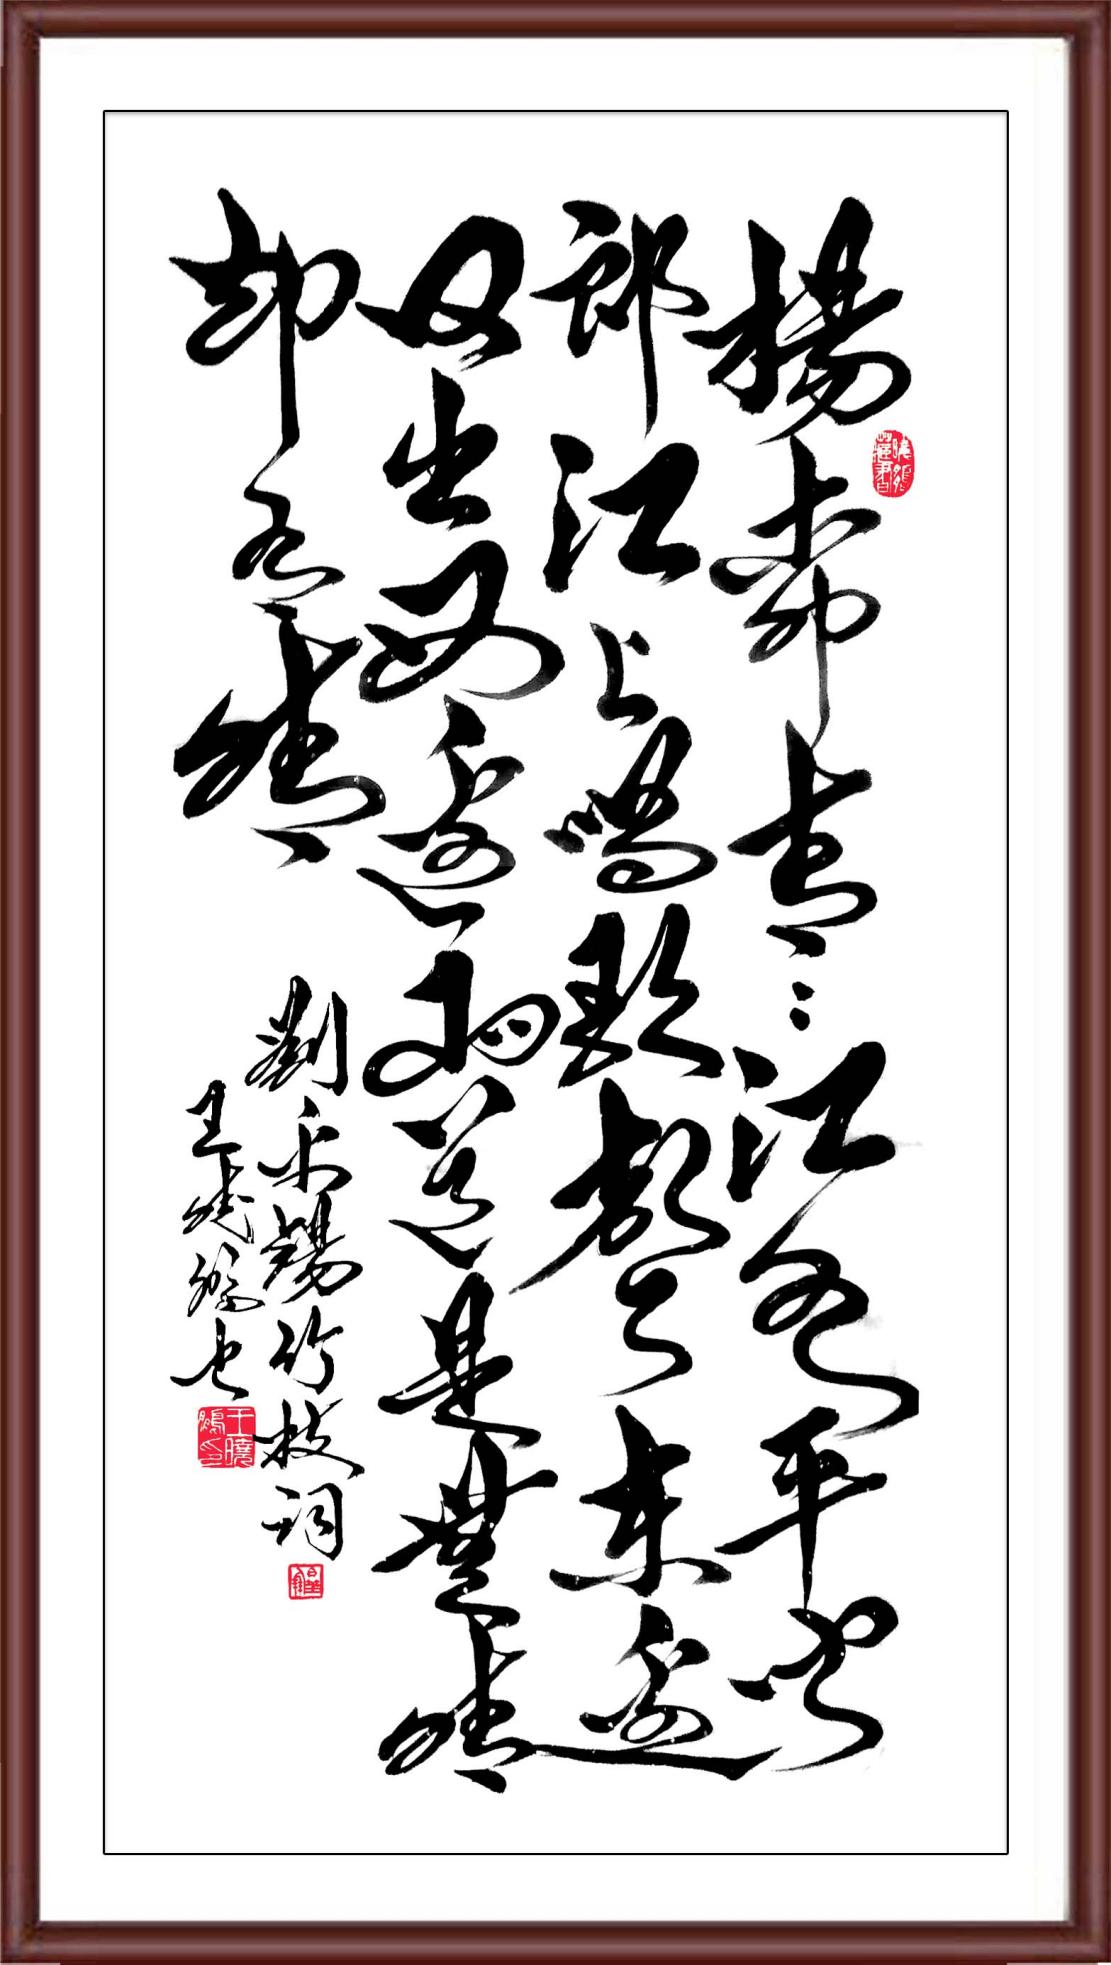 楊柳青々江水平聞
郎江上唱歌聲東邊
日出西邊雨道是無晴
却有晴
劉禹錫竹枝詞
王曉鵬書
王曉鵬印